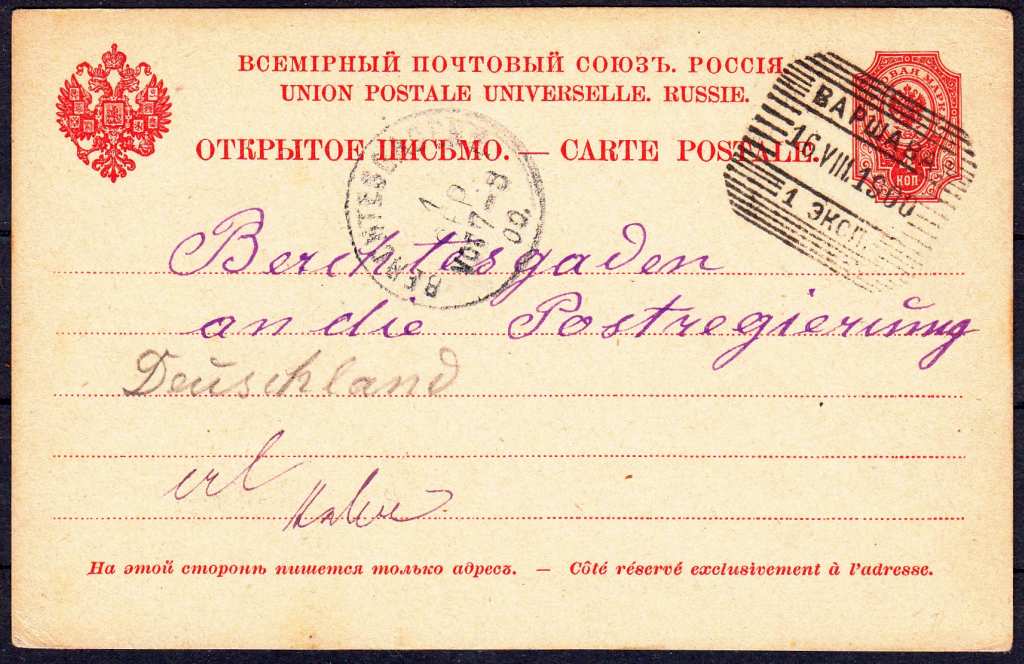 ВСЕМІРНЫЙ ПОЧТОВЫЙ СОЮЗЪ. РОССІЯ
UNION POSTALE UNIVERSELLE. RUSSIE.
ОТКРЫТОЕ ПИСЬМО. — CARTE POSTALE.
ВАРШАВА
16.VIII.1900
1 ЭКСП.
КОП
1
SEP
VOR 7-8
00.
Berchtesgaden
an die Postregierung
Deuschland
erl
На этой сторонѣ пишется только адресъ. — Côté réservé exclusivement à l'adresse.